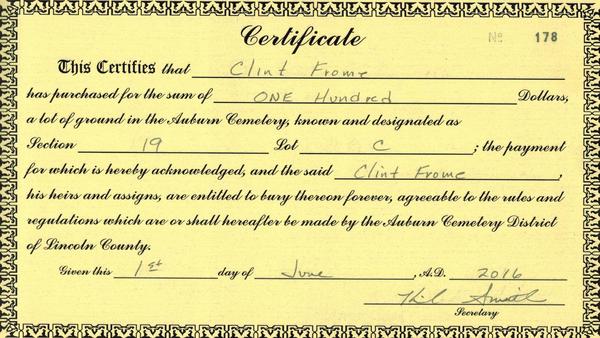 Certificate
No 178
This Certifies that Clint Frome
has purchased for the sum of ONE Hundred Dollars,
a lot of ground in the Auburn Cemetery, known and designated as
Section 19 Lot C ; the payment
for which is hereby acknowledged, and the said Clint Frome ,
his heirs and assigns, are entitled to bury thereon forever, agreeable to the rules and
regulations which are or shall hereafter be made by the Auburn Cemetery District
of Lincoln County.
Given this 1st day of June , A.D. 2016
Smith
Secretary